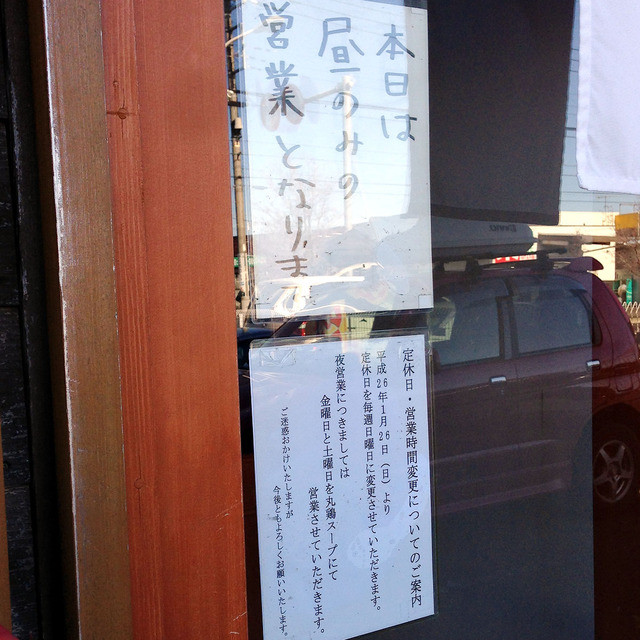 本日は
昼のみの
営業となります
定休日・営業時間変更についてのご案内
平成26年1月26日（日）より
定休日を毎週日曜日に変更させていただきます。
夜営業につきましては
金曜日と土曜日を丸鶏スープにて
営業させていただきます。
ご迷惑おかけいたしますが
今後ともよろしくお願いいたします。